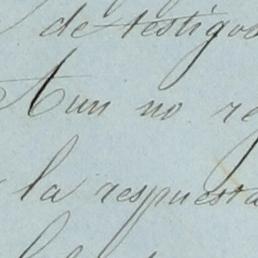 de testigos
Aun no re
la respuesta